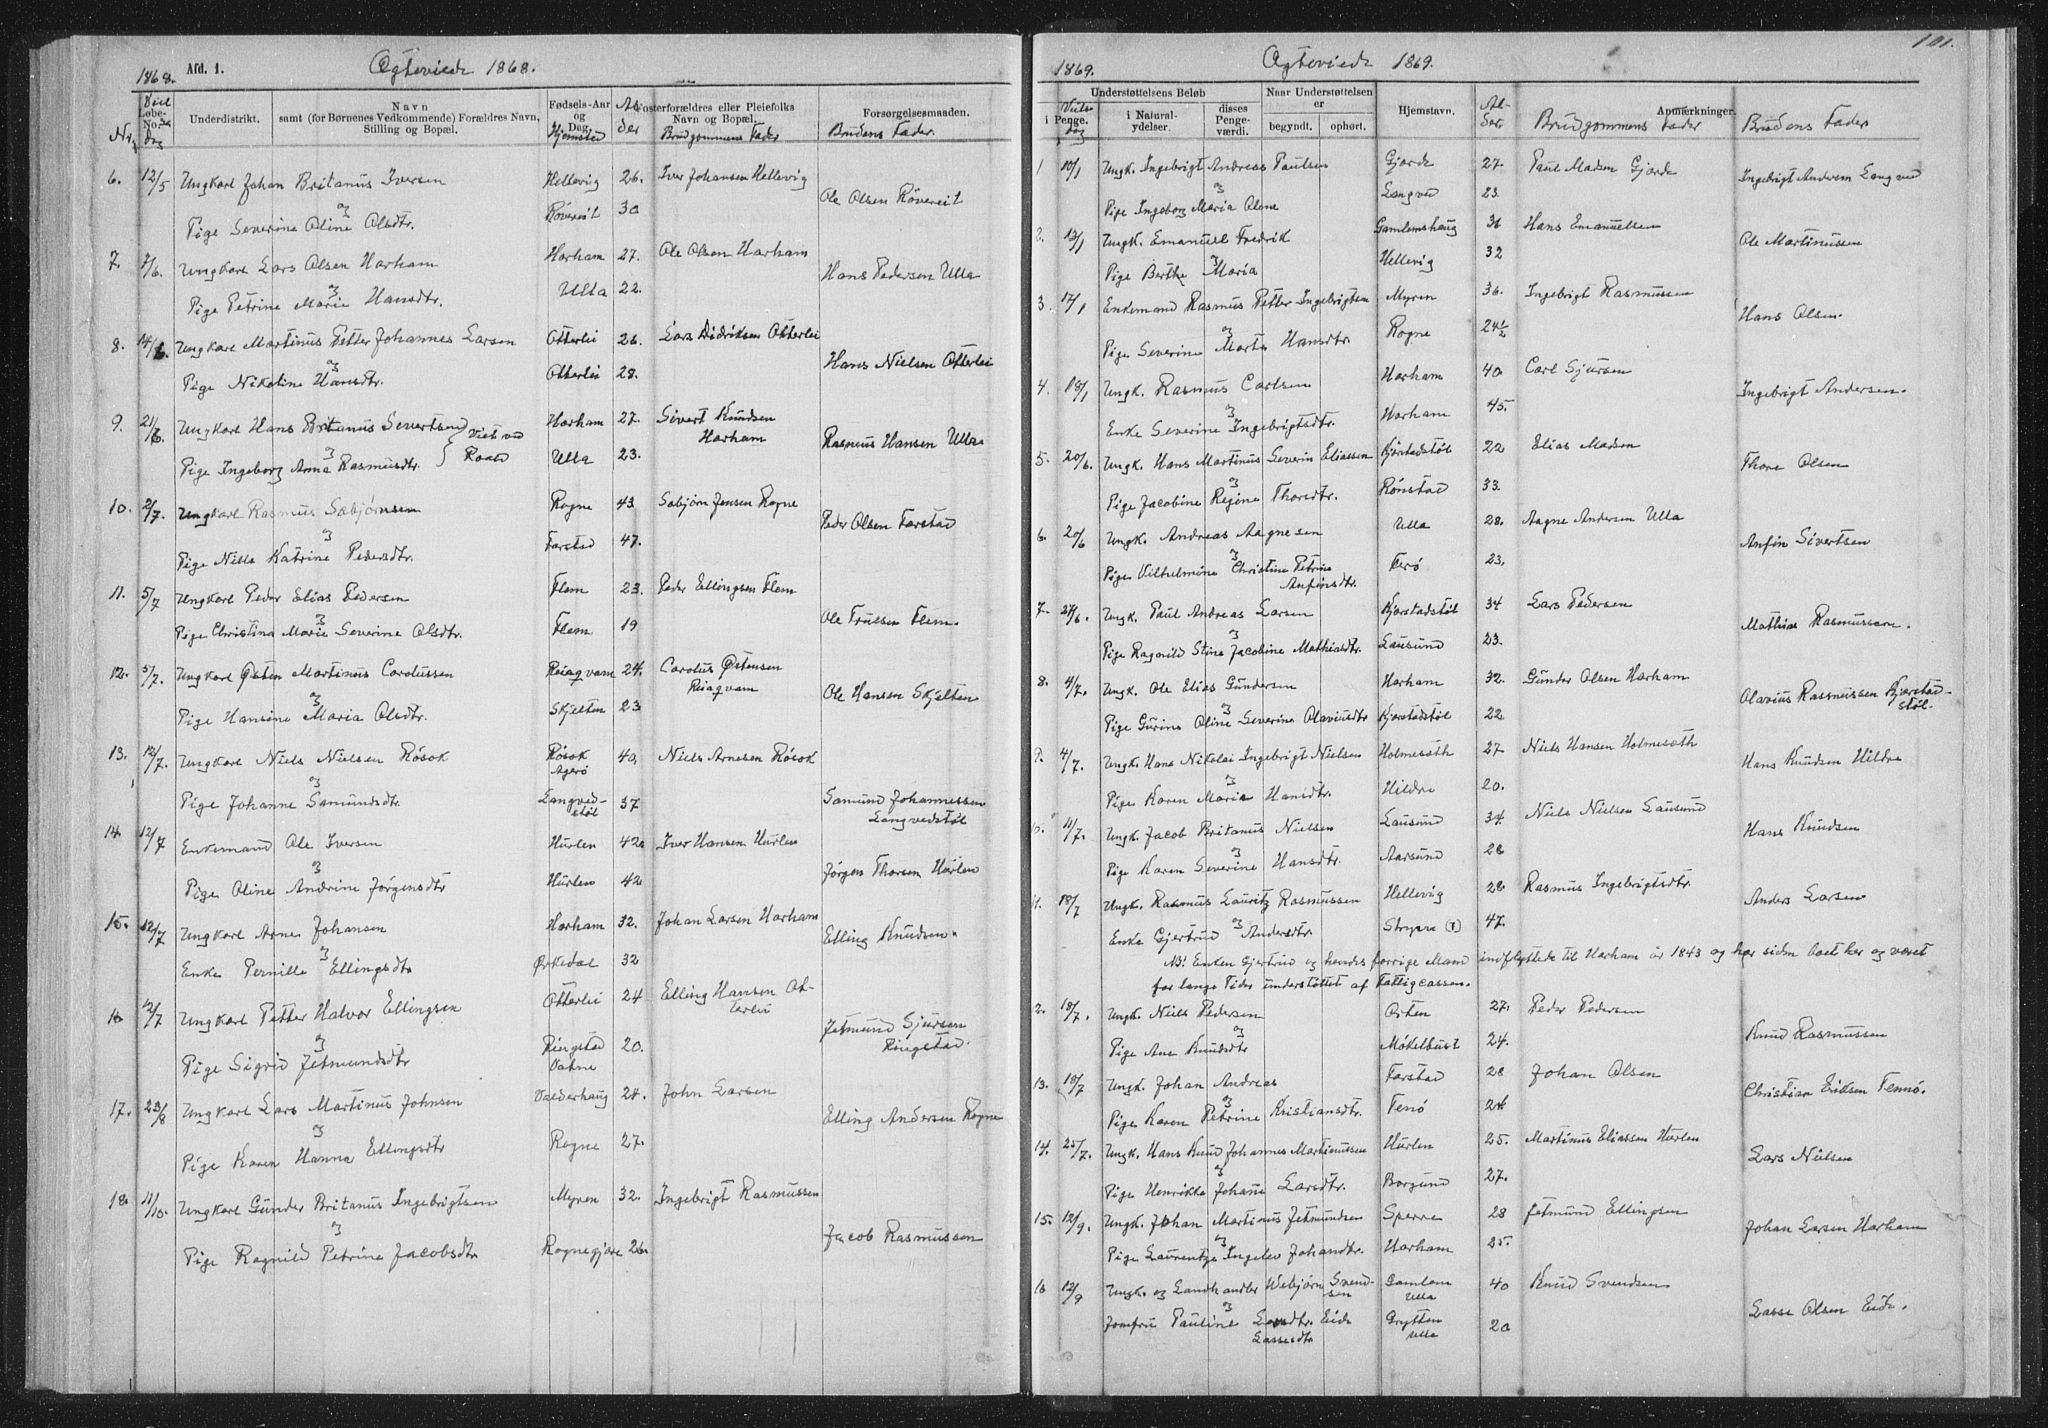 1868. Afd. 1. Ægteviede 1868.
Nr. Viet Løbe-No. Dag Underdistrikt. Navn samt (for Børnenes Vedkommende) Forældres Navn, Stilling og Bopæl. Fødsels-Aar og Dag. Hjemsted Al der Fosterforældres eller Pleiefolks Navn og Bopæl. Brudgommens Fader Forsørgelsesmaaden. Brudens Fader.
6. 12/5 Ungkarl Johan Britanus Iversen Hellevig 26. Iver Johansen Hellevig
og
Pige Severine Oline Olsdtr. Røvereit 30 Ole Olsen Røvereit
7. 7/6. Ungkarl Lars Olsen Harham Harham 27. Ole Olsen Harham
og
Pige Petrine Marie Hansdtr. Ulla 22. Hans Pedersen Ulla
8. 14/6. Ungkarl Martinus Petter Johannes Larsen Otterlei 26. Lars Didriksen Otterlei
og
Pige Nikoline Hansdtr. Otterlei 28. Hans Nielsen Otterlei
9. 21/6. Ungkarl Hans Britanus Severtsen Viet ved Roald Harham 27. Sivert Knudsen Harham
og
Pige Ingeborg Anna Rasmusdtr. Ulla 23. Rasmus Hansen Ulla
10. 2/7. Ungkarl Rasmus Sabjørnsen Rogne 43 Sabjørn Jensen Rogne
og
Pige Nille Katrine Pedersdtr. Farstad 47. Peder Olsen Farstad
11. 5/7 Ungkarl Peder Elias Pedersen Flem 23. Peder Ellingsen Flem
og
Pige Christina Marie Severine Olsdtr. Flem 19 Ole Trulsen Flem.
12. 5/7. Ungkarl Østen Martinus Carolussen Reiaqvam 24. Carolus Østensen Reiaqvam
og
Pige Hansine Maria Olsdtr. Skjelten 23 Ole Hansen Skjelten
13. 12/7. Ungkarl Niels Nielsen Røsok Røsok Agerø 40, Niels Arnesen Røsok
og
Pige Johanne Samundsdtr. Langved-støl 37 Samund Johannessen Langvedstøl
14. 12/7 Enkemand Ole Iversen Hurlen 42. Iver Hansen Hurlen
og
Pige Oline Andrine Jørgensdtr Hurlen 42 Jørgen Thorsen Hurlen
15. 12/7 Ungkarl Arne Johansen Harham 32. Johan Larsen Harham
og
Enke Pernille Ellingsdtr Ørkedal 32 Elling Knudsen.
16 12/7 Ungkarl Petter Halvor Ellingsen Otterlei 24 Elling Hansen Ot-terlei
og
Pige Sigrid Jetmundsdtr Ringstad Vatne 20. Jetmund Sjursen Ringstad.
17. 23/8 Ungkarl Lars Martinus Johnsen Valderhaug 24. John Larsen
og
Pige Karen Hanna Ellingsdtr Rogne 27. Elling Andersen Rogne
18. 11/10. Ungkarl Gunder Britanus Ingebrigtsen Myren 32. Ingebrigt Rasmussen
og
Pige Ragnild Petrine Jacobsdtr Rognegjære 26. Jacob Rasmussen
101.
1869. Ægteviede 1869.
Understøttelsens Beløb Naar Understøttelsen er
i Penge. Viets Dag i Natural-ydelser. disses Penge-værdi. begyndt. ophørt. Hjemstavn. Al-der. Anmærkninger. Brudgommens Fader Brudens Fader
1 10/1 Ungk. Ingebrigt Andreas Paulsen Gjørde 27. Paul Madsen Gjørde
og
Pige Ingeborg Maria Olene Langved 23. Ingebrigt Andersen Langved
2. 13/1 Ungk. Emanuel Fredrik Gamlemshaug 31 Hans Emanuelsen
og
Pige Berthe Maria Hellevig 32 Ole Martinussen
3. 17/1 Enkemand Rasmus Petter Ingebrigtsen Myren 36. Ingebrigt Rasmussen
og
Pige Severine Marta Hansdtr. Rogne 24½ Hans Olsen.
4. 18/1 Ungk. Rasmus Carlsen Harham 40 Carl Sjursen
og
Enke Severine Ingebrigtsdtr. Harham 45. Ingebrigt Andersen.
5. 20/6. Ungk. Hans Martinus Severin Eliassen Kjørstadstøl 22 Elias Madsen
og
Pige Jacobine Regine Thorsdtr. Rønstad 33. Thore Olsen
6. 20/6 Ungk. Andreas Aagnesen Ulla 28. Aagne Andersen Ulla
og
Pige Vilhelmine Christina Petrine Anfinsdtr. Ferø 23. Anfin Sivertsen
7. 27/6. Ungk. Paul Andreas Larsen Kjørstadstøl 34 Lars Pedersen
og
Pige Ragnild Stina Jacobine Mathiasdtr. Lausund 23. Mathias Rasmussen.
8. 4/7. Ungk. Ole Elias Gundersen Harham 32. Gunder Olsen Harham
og
Pige Gurine Oline Severine Olaviusdtr Kjørstadstøl 22 Olavius Rasmussen Kjørstad-støl.
9. 4/7. Ungk. Hans Nikolai Ingebrigt Nielsen Holmesæth 27 Niels Hansen Holmesæth
og
Pige Karen Maria Hansdtr. Hildre 20. Hans Knudsen Hildre
11/7. Ungk. Jacob Britanus Nielsen Lausund 34. Niels Nielsen Lausund
og
Pige Karen Severine Hansdtr. Aarsund 28 Hans Knudsen
11. 18/7 Ungk. Rasmus Lauritz Rasmussen Hellevig 28 Rasmus Ingebrigtsdtr.
og
Enke Gjertrud Andersdtr. Strypa (?) 47. Anders Larsen
NB! Enken Gjertrud og hendes forrige Mand indflyttede til Harham år 1843 og har siden boet her og været
for lange Tider understøttet af Fattigcassen.
2. 18/7. Ungk. Niels Pedersen Orten 27. Peder Pedersen
og
Pige Ane Knudsdtr Møkelbust 24. Knud Rasmussen
13. 18/7 Ungk. Johan Andreas Farstad 28 Johan Olsen
og
Pige Karen Petrine Kristiansdtr. Fenø 24 Christian Eriksen Fennø.
14. 25/7. Ungk. Hans Knud Johannes Martinussen Hurlen 25. Martinus Eliassen Hurlen
og
Pige Henrikke Johane Larsdtr. Borgund 27. Lars Nielsen
15. 12/9. Ungk. Johan Martinus Jetmundsen Sperre 28 Jetmund Ellingsen
og
Pige Laurentze Ingelev Johandtr. Harham 25. Johan Larsen Harham
16 12/9 Ungk. og Landhandler Webjørn Svend-sen Gamlem Ulla 40 Knud Svendsen
og
Jomfru Pauline Lassesdtr Eide Grytten Ulla 20 Lasse Olsen Eide.